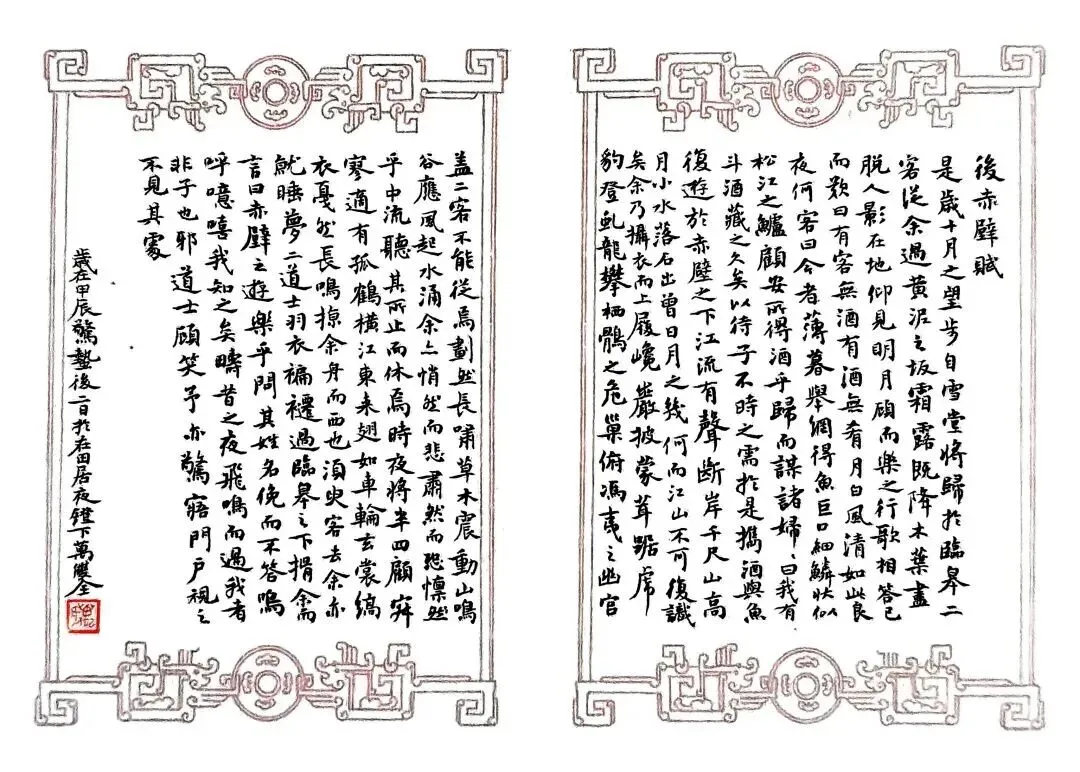 後赤壁賦
是歲十月之望步自雪堂將歸於臨皋二
客從余過黃泥之坂霜露既降木葉盡
脫人影在地仰見明月顧而樂之行歌相答已
而歎曰有客無酒有酒無肴月白風清如此良
夜何客曰今者薄暮舉網得魚巨口細鱗狀似
松江之鱸顧安所得酒乎歸而謀諸婦〻曰我有
斗酒藏之久矣以待子不時之需於是攜酒與魚
復遊於赤壁之下江流有聲斷岸千尺山高
月小水落石出曾日月之幾何而江山不可復識
矣余乃攝衣而上履巉巖披蒙茸踞虎
豹登虬龍攀栖鶻之危巢俯馮夷之幽宮
蓋二客不能從焉劃然長嘯草木震動山鳴
谷應風起水涌余亦悄然而悲肅然而恐懍然
乎中流聽其所止而休焉時夜將半四顧寂
寥適有孤鶴橫江東來翅如車輪玄裳縞
衣戛然長鳴掠余舟而西也須臾客去余亦
就睡夢二道士羽衣褊褼過臨皋之下揖余而
言曰赤壁之遊樂乎問其姓名俛而不答嗚
呼噫嘻我知之矣疇昔之夜飛鳴而過我者
非子也邪道士顧笑予亦驚寤門戶視之
不見其處
歲在甲辰驚蟄後二日於在田居夜鐙下萬雙全